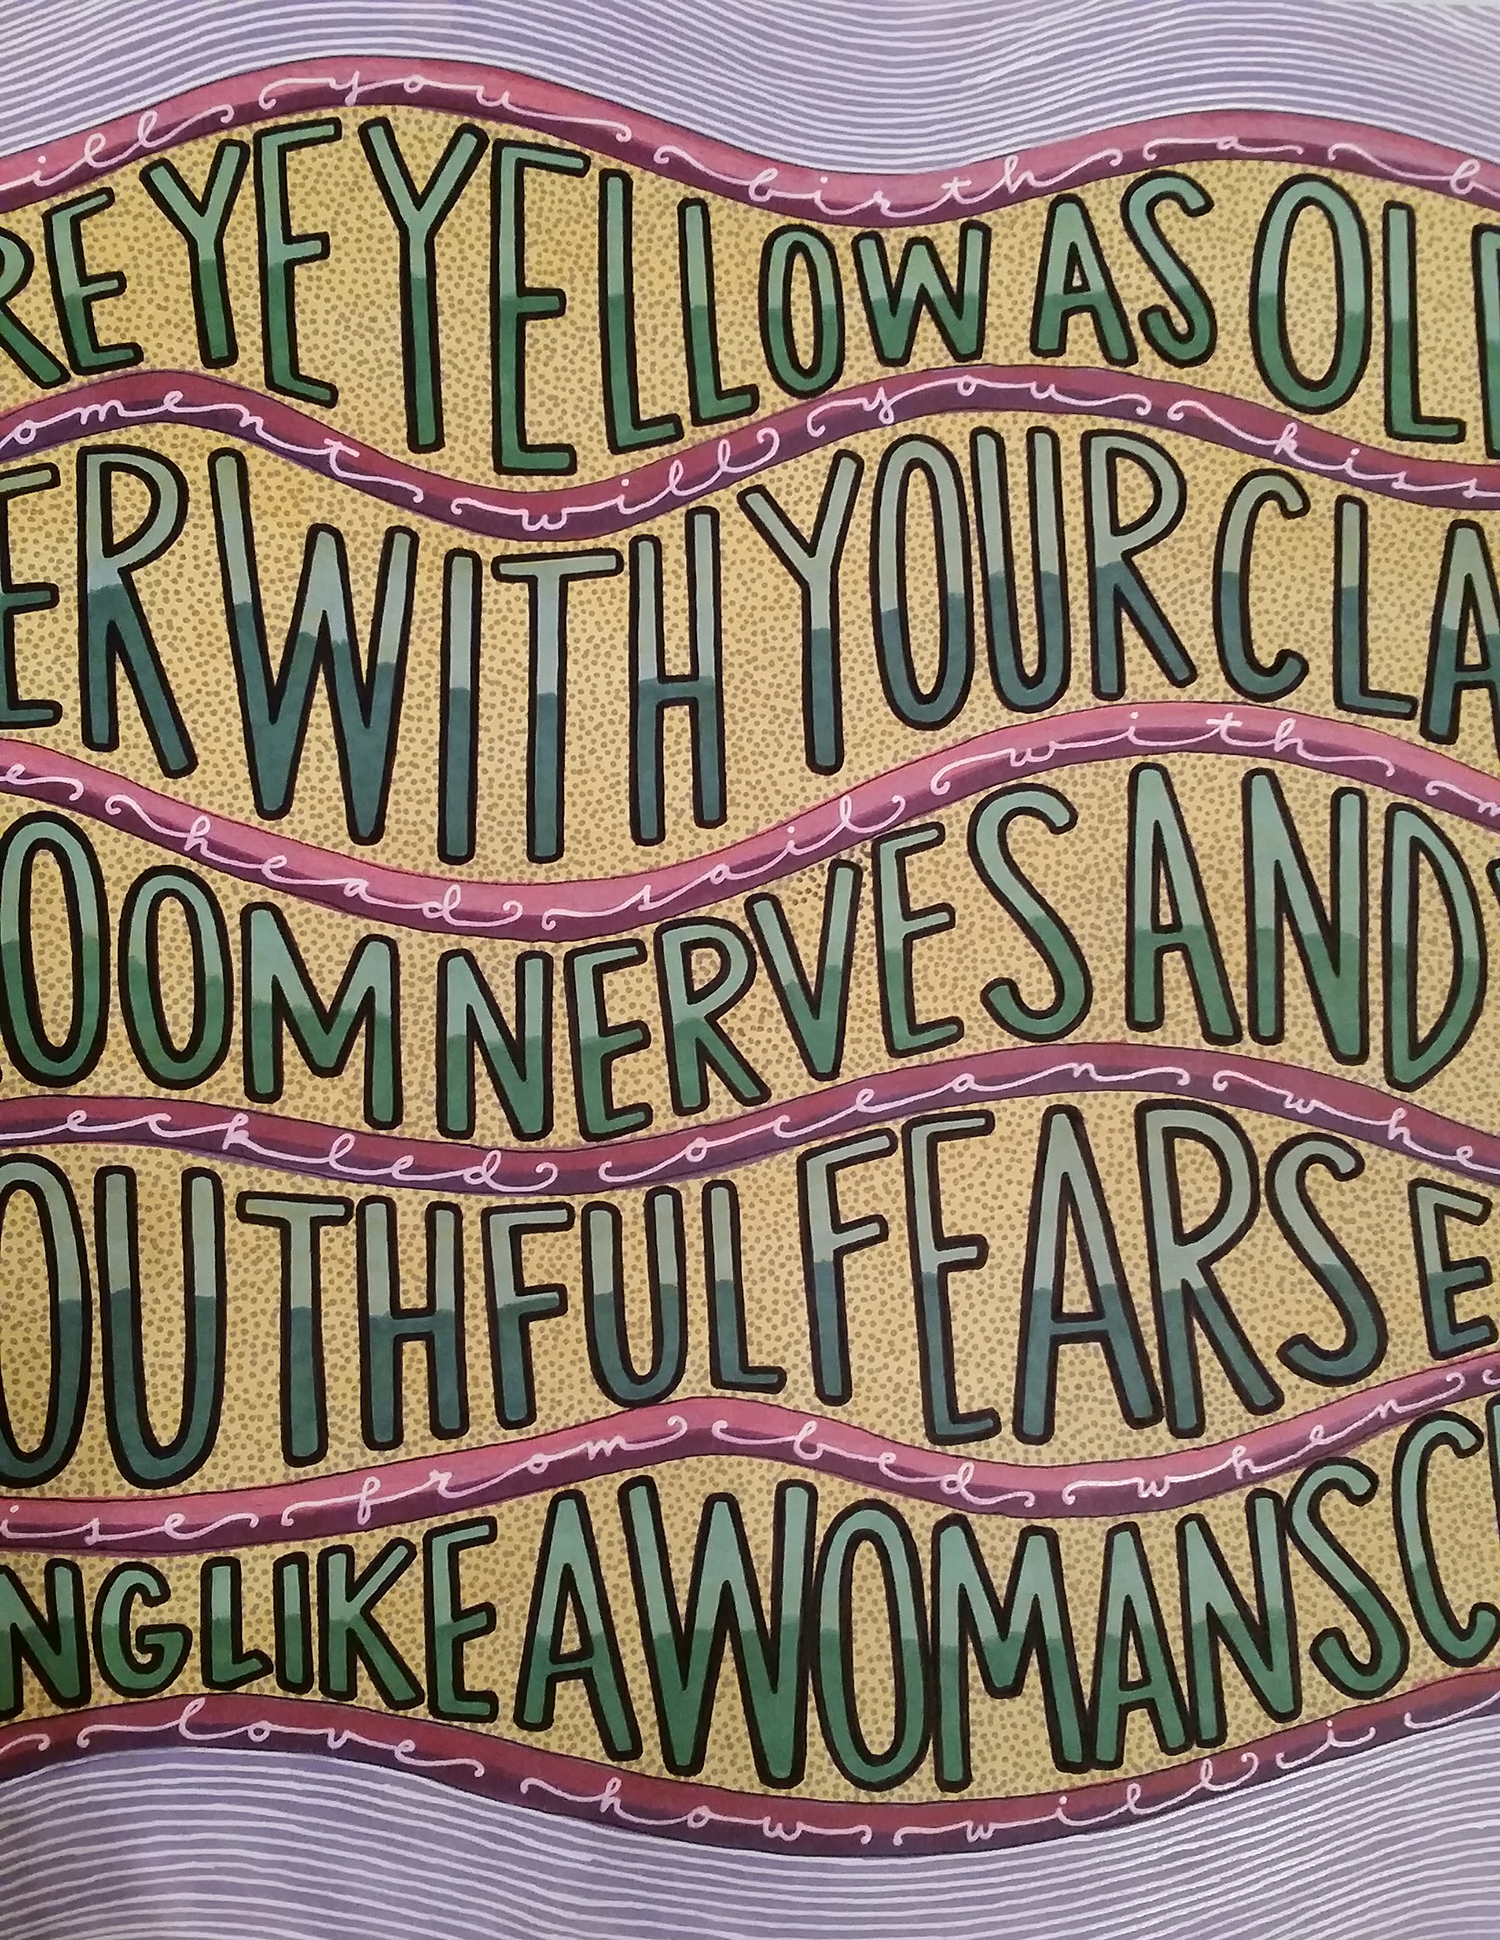 ill you birth a b
RE YE YELLOW AS OL
oment will you kiss
ER WITH YOUR CLA
e head sail with m
OOM NERVES AND
eckled ocean whe
OUTHFUL FEARS E
ise from bed when
NG LIKE A WOMAN SC
s love how will i